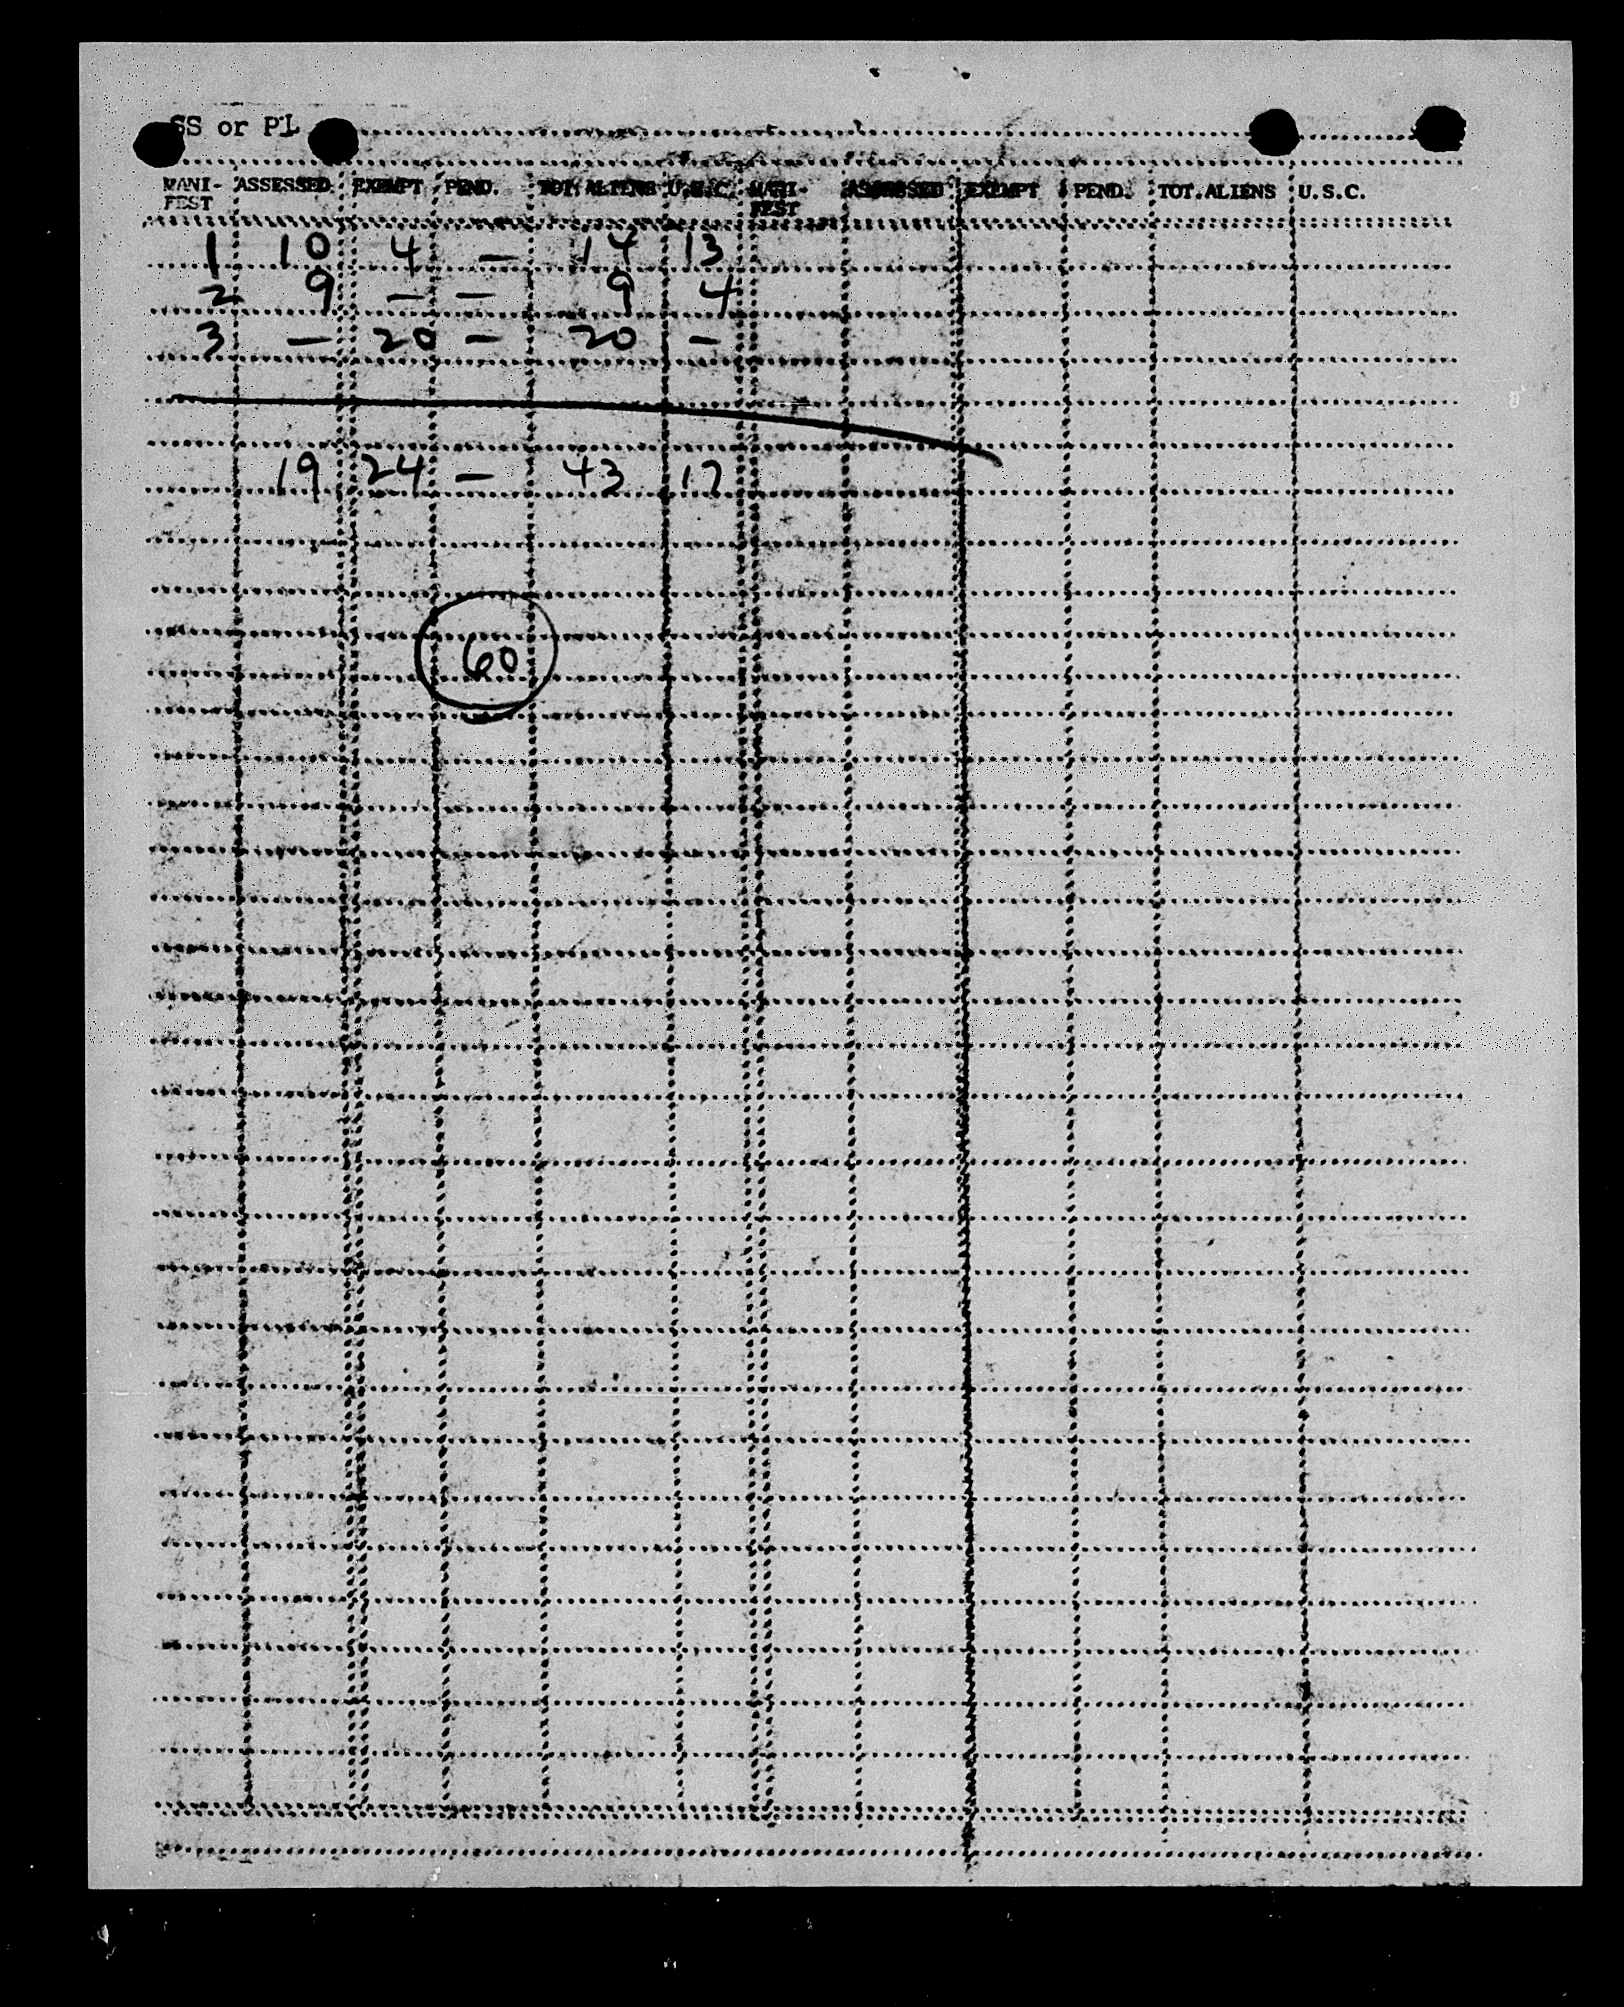 SS or PL
MANI- ASSESSED EXEMPT PEND. TOT. ALIENS U.S.C. MANI- ASSESSED EXEMPT PEND. TOT. ALIENS U.S.C.
FEST FEST
1 10 4 - 14 13
2 9 - - 9 4
3 - 20 - 20 -
19 24 - 43 17
60